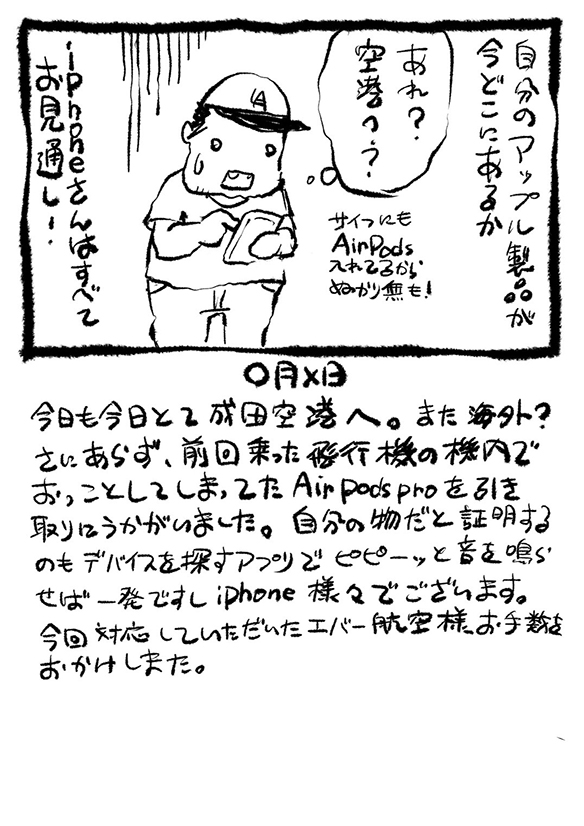 自分のアップル製品が
今どこにあるか
あれ？
空港へ？
サイフにも
AirPods
入れてるから
ぬかり無も！
iphoneさんはすべて
お見通し！
A
〇月×日
今日も今日とて成田空港へ。また海外？
さにあらず、前回乗った飛行機の機内で
おっことしてしまってたAirpodsproを引き
取りにうかがいました。自分の物だと証明する
のもデバイスを探すアプリでピピーッと音を鳴ら
せば一発ですしiphone様々でございます。
今回対応していただいたエバー航空様、お手数を
おかけしました。